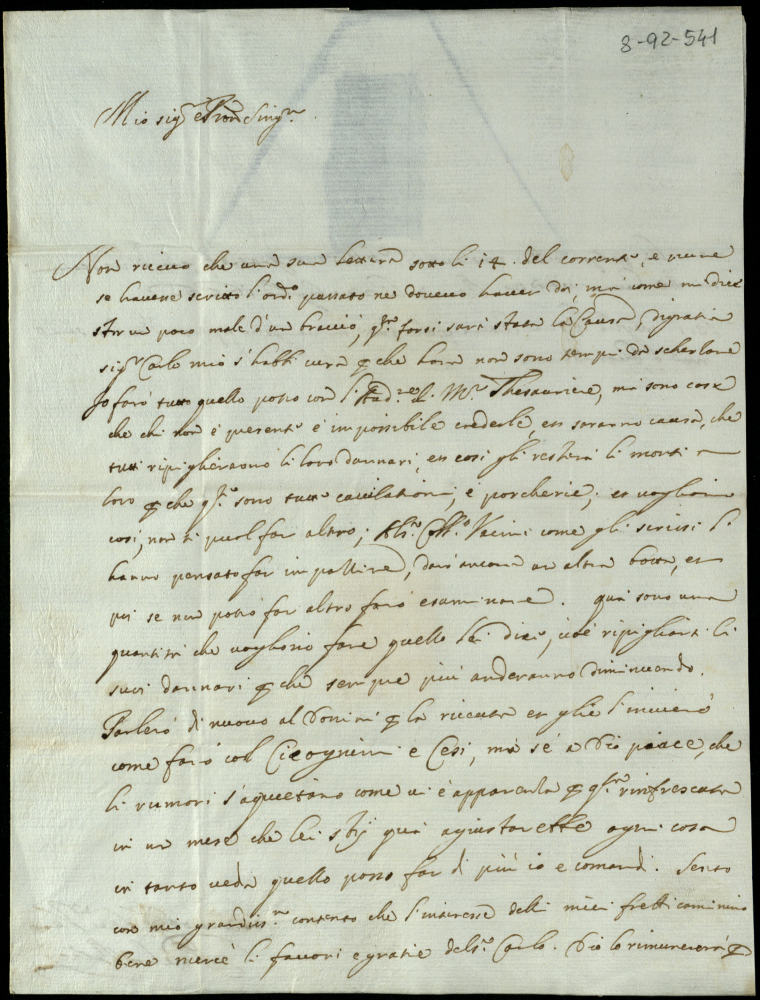 8-92-541
Mio sig.r e Pron Sing.r
Non riceuo che una sua lettera sotto li 14. del corrente, e pure
se hauesse scritto l'ord.o passato ne doueuo hauer doi, ma come mi dice
star un poco male d'un braccio, q.o forsi sarà stata la Causa, di gratia
sig.r Carlo mio s'habbi cura che hora non sono tempi da scherzare
Io farò tutto quello posso con l' M.r Thesauriere, ma sono cose
che chi non è presente è impossibile crederle, et saranno causa, che
tutti ripiglieranno li loro dannari, et così gli resterà li monti
loro che q.o sono tutte cauilationi, e porcherie, et vogliono
così, non si puol far altro; Vacini come gli scrissi l'
hanno pensato far impallire, darò ancora un altra botta, et
poi se non potrò far altro farò esaminare. quà sono una
quantità che vogliono fare quello lei dice, cioè ripigliarsi li
suoi dannari che sempre più anderanno diminuendo.
Parlerò di nuovo al Donini la riceuta et glie l'inuierò
come farò col Cicognini e Cesi, ma se a Dio piace, che
li rumori s'aquietano come ui è apparenza rinfrescata
in un mese che lei stij quà agiustarebbe ogni cosa
in tanto veda quello posso far di più io e comandi. Sento
con mio grandiss.o contento che l'interesse delli miei fretti camini
bene mercè li fauori e gratie del s.r Carlo. Dio lo rimunererà